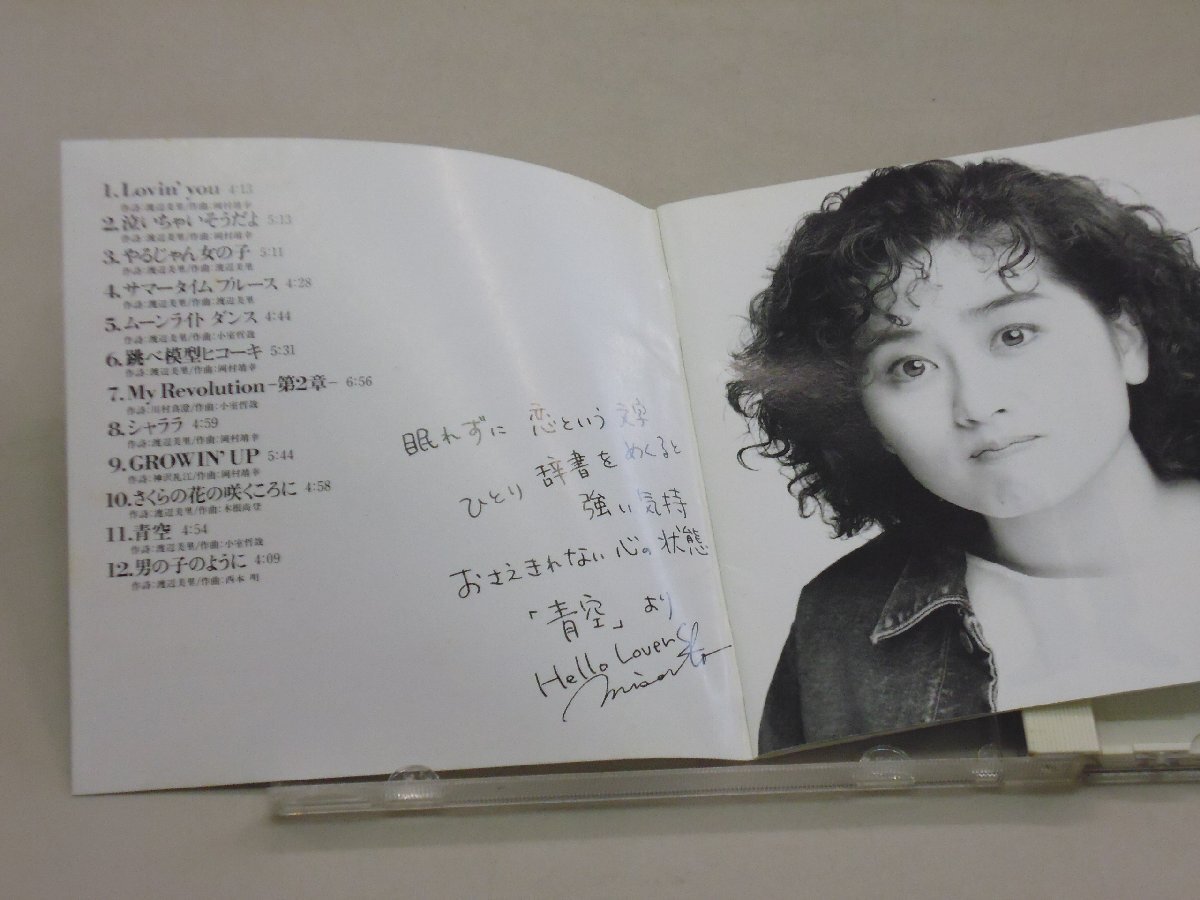 1.Lovin' you 4:13
作詩:渡辺美里/作曲:岡村靖幸
2.泣いちゃいそうだよ 5:13
作詩:渡辺美里/作曲:岡村靖幸
3.やるじゃん女の子 5:11
作詩:渡辺美里/作曲:渡辺美里
4.サマータイム ブルース 4:28
作詩:渡辺美里/作曲:渡辺美里
5.ムーンライト ダンス 4:44
作詩:渡辺美里/作曲:小室哲哉
6.跳べ模型ヒコーキ 5:31
作詩:渡辺美里/作曲:岡村靖幸
7.My Revolution-第2章- 6:56
作詩:川村真澄/作曲:小室哲哉
8.シャララ 4:59
作詩:渡辺美里/作曲:岡村靖幸
9.GROWIN' UP 5:44
作詩:神沢礼江/作曲:岡村靖幸
10.さくらの花の咲くころに 4:58
作詩:渡辺美里/作曲:木根尚登
11.青空 4:54
作詩:渡辺美里/作曲:小室哲哉
12.男の子のように 4:09
作詩:渡辺美里/作曲:西本 明
眠れずに 恋という 文字
ひとり 辞書を めくると
強い気持
おさえきれない 心の状態
「青空」より
Hello Lovers
misato